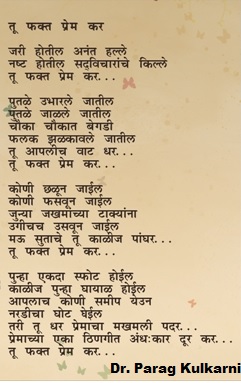 तू फक्त प्रेम कर
जरी होतील अनंत हल्ले
नष्ट होतील सद्विचारांचे किल्ले
तू फक्त प्रेम कर...
पुतळे उभारले जातील
पुतळे जाळले जातील
चौका चौकात बेगडी
फलक झळकावले जातील
तू आपलीच वाट धर...
तू फक्त प्रेम कर...
कोणी छळून जाईल
कोणी फसवून जाईल
जुन्या जखमांच्या टाक्यांना
उगीचच उसवून जाईल
मऊ सुताचे तू काळीज पांघर...
तू फक्त प्रेम कर...
पुन्हा एकदा स्फोट होईल
काळीज पुन्हा घायाळ होईल
आपलाच कोणी समीप येउन
नरडीचा घोट घेईल
तरी तू धर प्रेमाचा मखमली पदर...
प्रेमाच्या एका ठिणगीत अंधःकार दूर कर...
तू फक्त प्रेम कर...
Dr. Parag Kulkarni